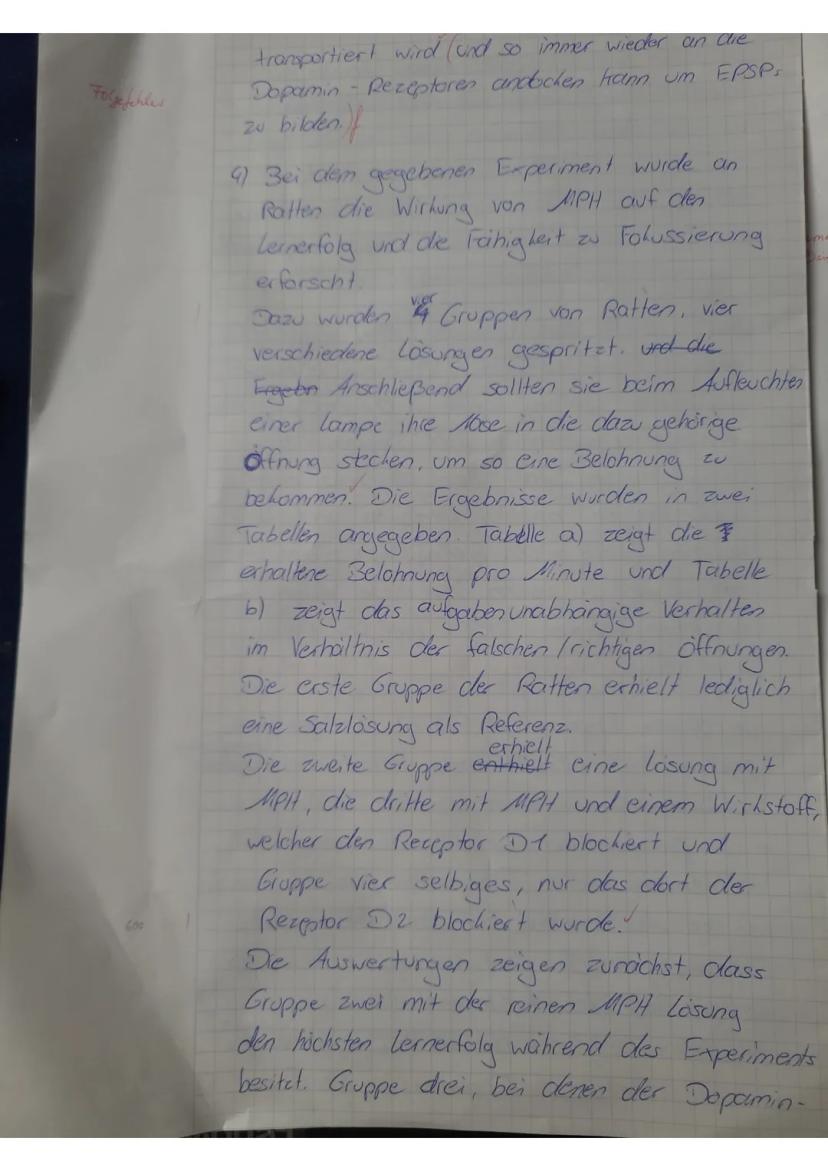 transportiert wird (und so immer wieder an die
Folgefehler
Dopamin - Rezeptoren andocken kann um EPSPs
zu bilden.)
4) Bei dem gegebenen Experiment wurde an
Ratten die Wirkung von MPH auf den
Lernerfolg und die Fähigkeit zu Fokussierung
erforscht.
Dazu wurden vier Gruppen von Ratten, vier
verschiedene Lösungen gespritzt. und die
Ergebn Anschließend sollten sie beim Aufleuchten
einer Lampe ihre Nase in die dazu gehörige
Öffnung stecken, um so eine Belohnung zu
bekommen. Die Ergebnisse wurden in zwei
Tabellen angegeben. Tabelle a) zeigt die
erhaltene Belohnung pro Minute und Tabelle
b) zeigt das aufgabenunabhängige Verhalten
im Verhältnis der falschen/richtigen Öffnungen.
Die erste Gruppe der Ratten erhielt lediglich
eine Salzlösung als Referenz.
Die zweite Gruppe enthielt erhielt eine Lösung mit
MPH, die dritte mit MPH und einem Wirkstoff,
welcher den Receptor D1 blockiert und
Gruppe vier selbiges, nur das dort der
600
Rezeptor D2 blockiert wurde.
Die Auswertungen zeigen zunächst, dass
Gruppe zwei mit der reinen MPH Lösung
den höchsten Lernerfolg während des Experiments
besitzt. Gruppe drei, bei denen der Dopamin-